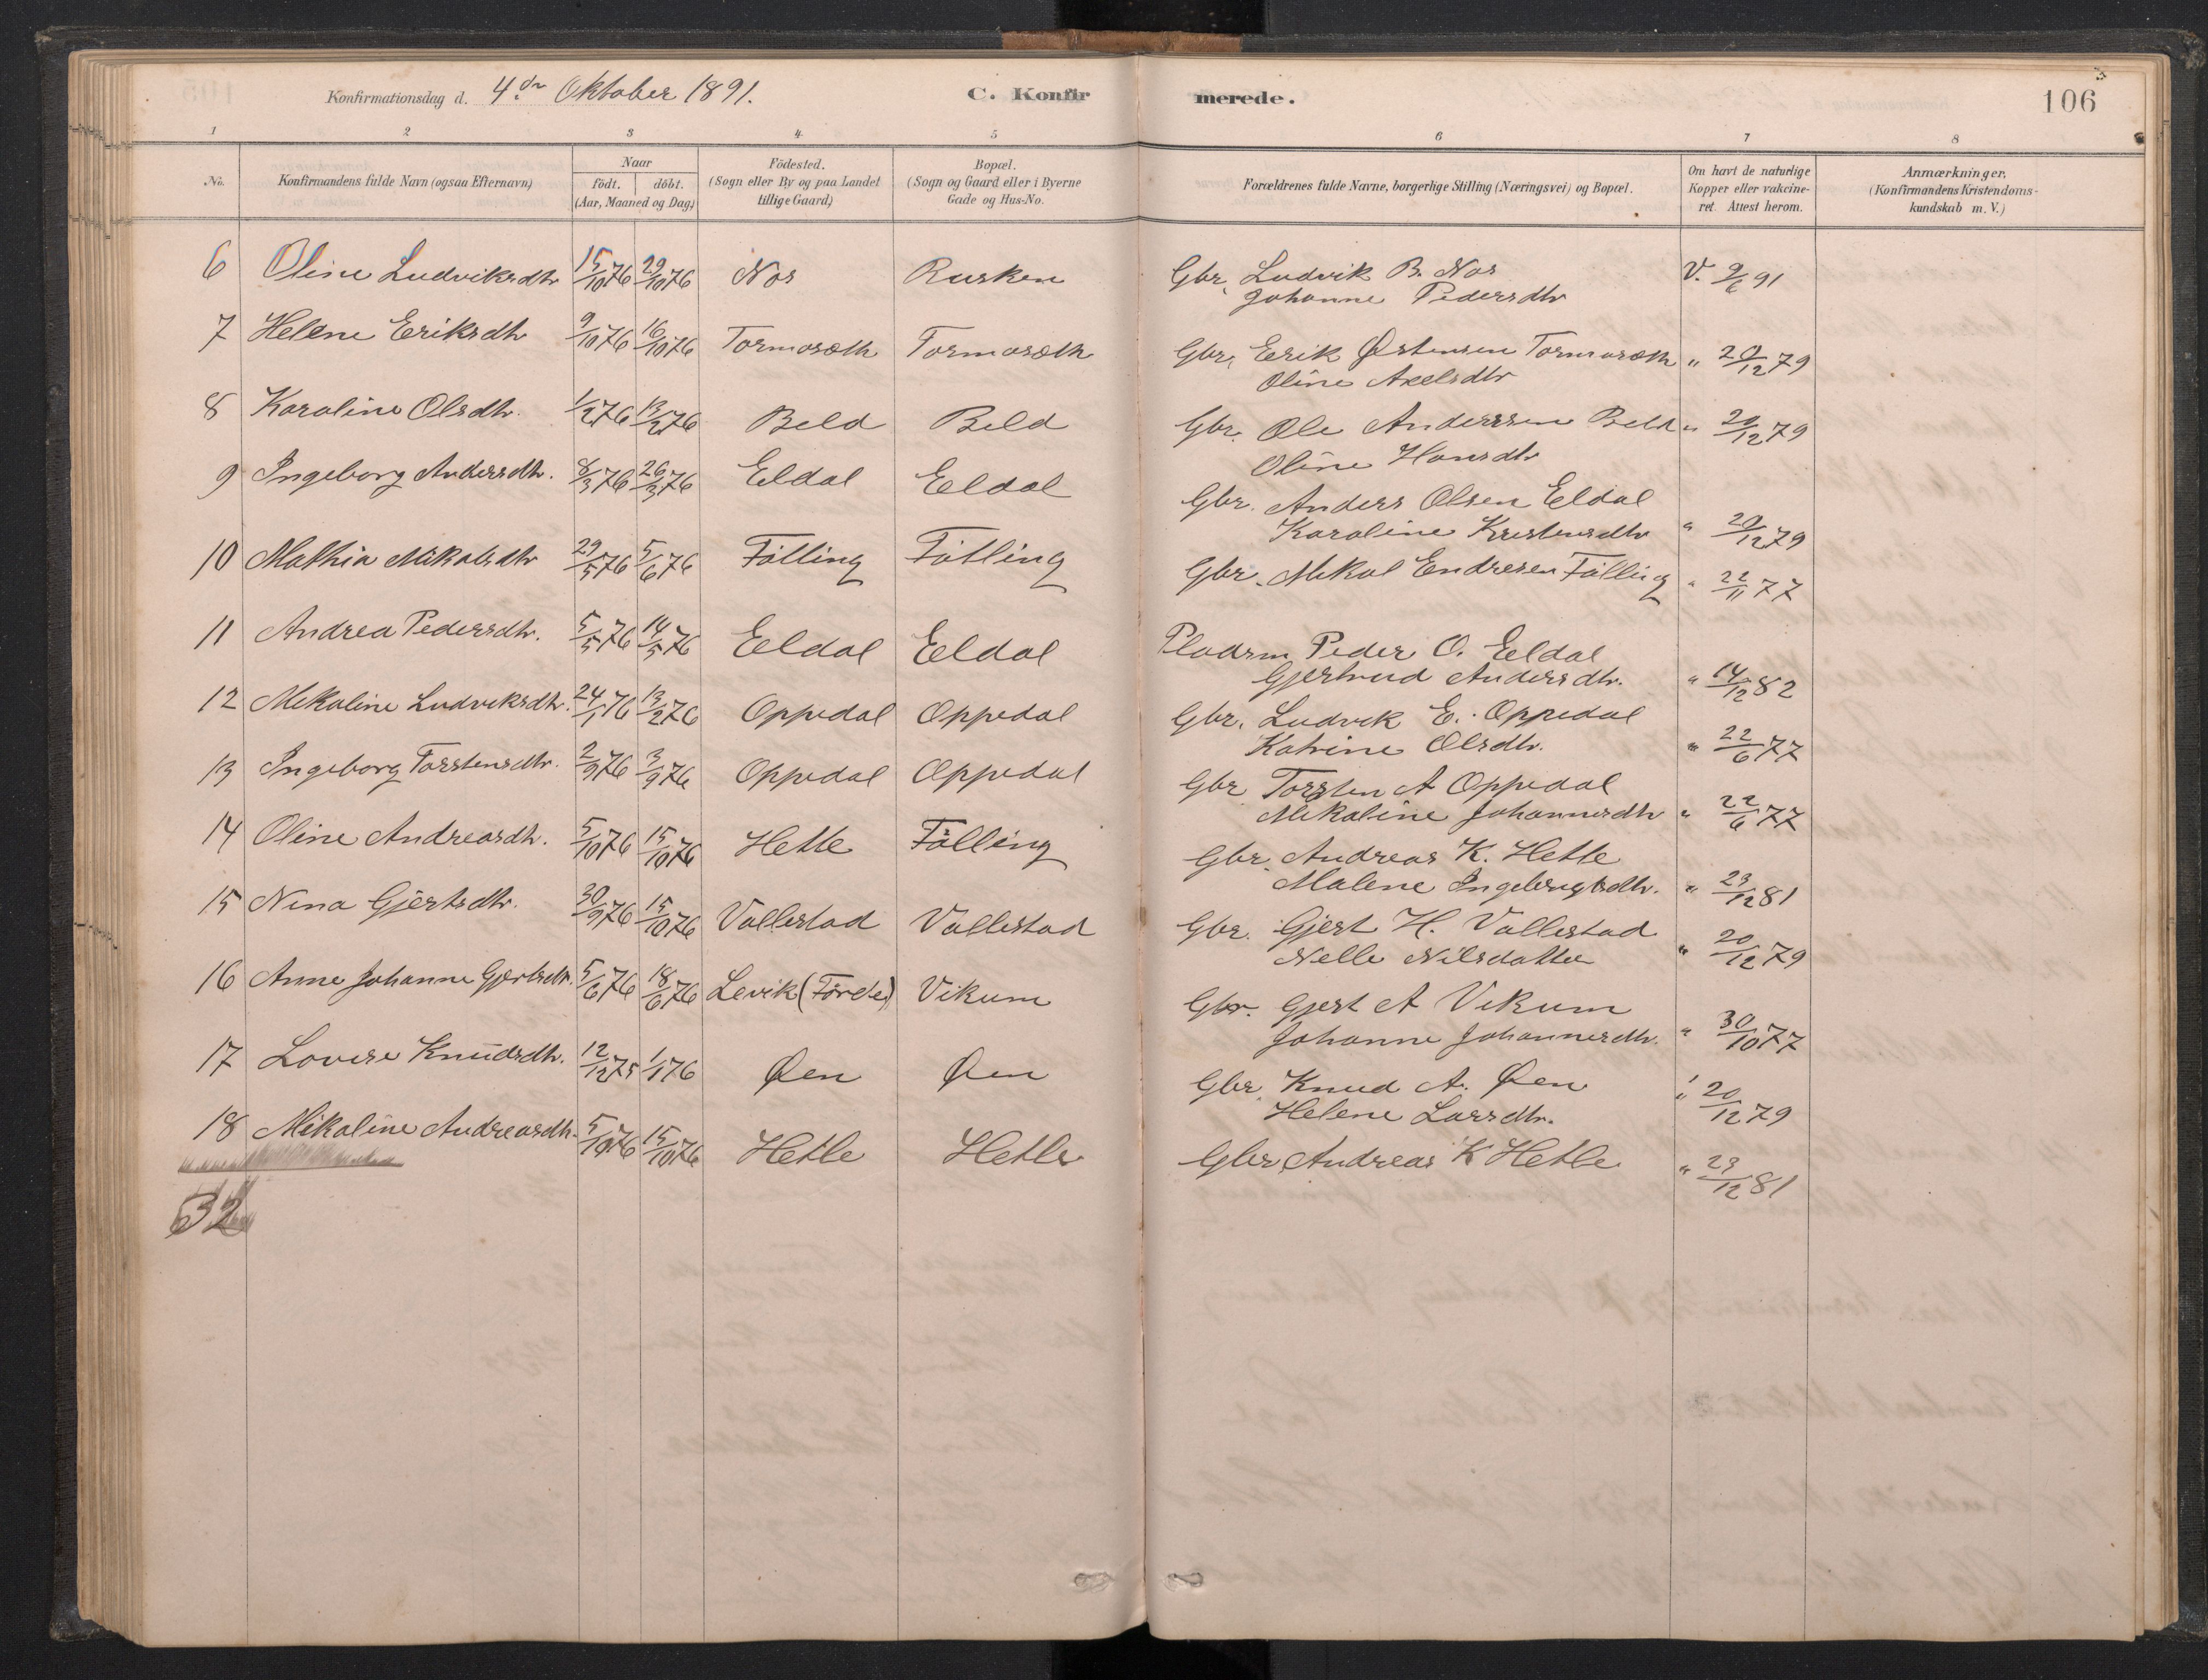 Konfirmationsdag d. 4de Oktober 1891.
C. Konfirmerede.
106
1 2 3 4 5 6 7 8
No.
Konfirmandens fulde Navn (ogsaa Efternavn)
Naar
födt. döbt.
(Aar, Maaned og Dag)
Födested.
(Sogn eller By og paa Landet
tillige Gaard)
Bopæl.
(Sogn og Gaard eller i Byerne
Gade og Hus-No.
Forældrenes fulde Navne, borgerlige Stilling (Næringsvei) og Bopæl.
Om havt de naturlige
Kopper eller vakcine-
ret. Attest herom.
Anmærkninger.
(Konfirmandens Kristendoms-
kundskab m. V.)
6 Oline Ludviksdtr 15/10 76 29/10 76 Nos Rusken Gbr. Ludvik B. Nos V. 9/6 91
Johanne Pedersdtr
7 Helene Eriksdtr 9/10 76 16/10 76 Tormosæth Tormosæth Gbr. Erik Østensen Tormosæth " 20/12 79
Oline Axelsdtr
8 Karoline Olsdtr. 1/2 76 13/2 76 Beld Beld Gbr. Ole Anderssen Beld " 20/12 79
Oline Hansdtr
9 Ingeborg Andersdtr. 8/3 76 26/3 76 Eldal Eeldal Gbr. Anders Olsen Eldal
Karoline Kristensdtr " 20/12 79
10 Mathia Mikalsdtr 29/5 76 5/6 76 Fölling Fölling Gbr. Mikal Endresen Fölling " 22/11 77
11 Andrea Pedersdtr. 5/5 76 14/5 76 Eeldal Eeldal Pladsm Peder O. Eeldal
Gjertrud Andersdtr. " 14/12 82
12 Mikaline Ludviksdtr. 24/1 76 13/2 76 Oppedal Oppedal Gbr. Ludvik E. Oppedal
Katrine Olsdtr. " 22/6 77
13 Ingeborg Torstensdtr. 2/9 76 3/9 76 Oppedal Oppedal Gbr Torsten A Oppedal
Mikaline Johannesdtr " 22/6 77
14 Oline Andreasdtr. 5/10 76 15/10 76 Hetle Fölling Gbr. Andreas K. Hetle
Malene Ingebrigtsdtr. " 23/12 81
15 Nina Gjertsdtr. 30/9 76 15/10 76 Vallestad Vallestad Gbr. Gjert H. Vallestad
Nelle Nilsdatter " 20/12 79
16 Anne Johanne Gjertsdtr. 5/6 76 18/6 76 Levik (Förde) Vikum Gbr. Gjert A Vikum
Johanne Johannesdtr. " 30/10 77
17 Lovise Knudsdtr. 12/12 75 1/1 76 Øen Øen Gbr. Knud A. Øen " 20/12 79
Helene Larsdtr.
18 Mikaline Andreasdtr. 5/10 76 15/10 76 Hetle Hetle Gbr Andreas K Hetle " 23/12 81
32